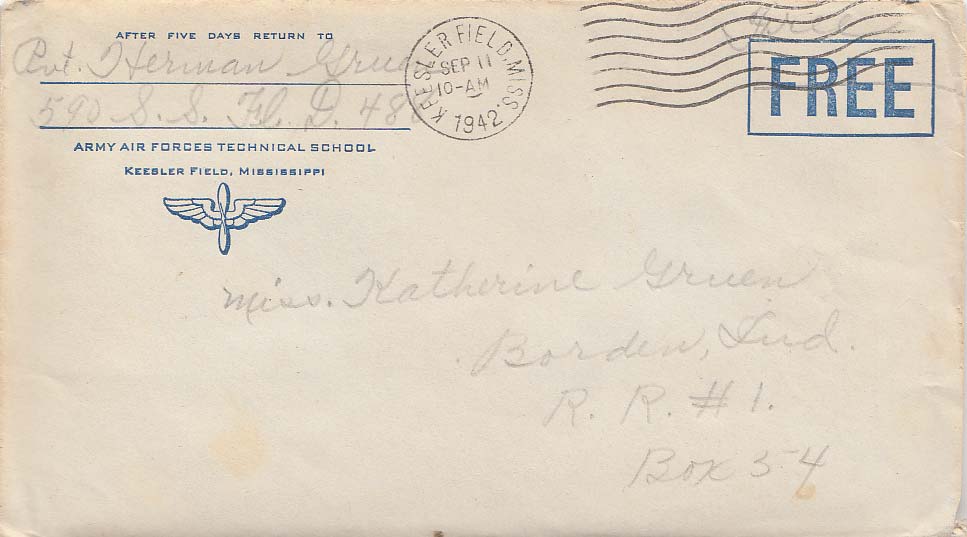 AFTER FIVE DAYS RETURN TO
Pvt. Herman Grue
590 S. S. Fl. D. 48
ARMY AIR FORCES TECHNICAL SCHOOL
KEESLER FIELD, MISSISSIPPI
KEESLER FIELD, MISS.
SEP 11
10-AM
1942
Free
FREE
Miss. Katherine Gruen
Borden, Ind.
R. R. #1.
Box 54